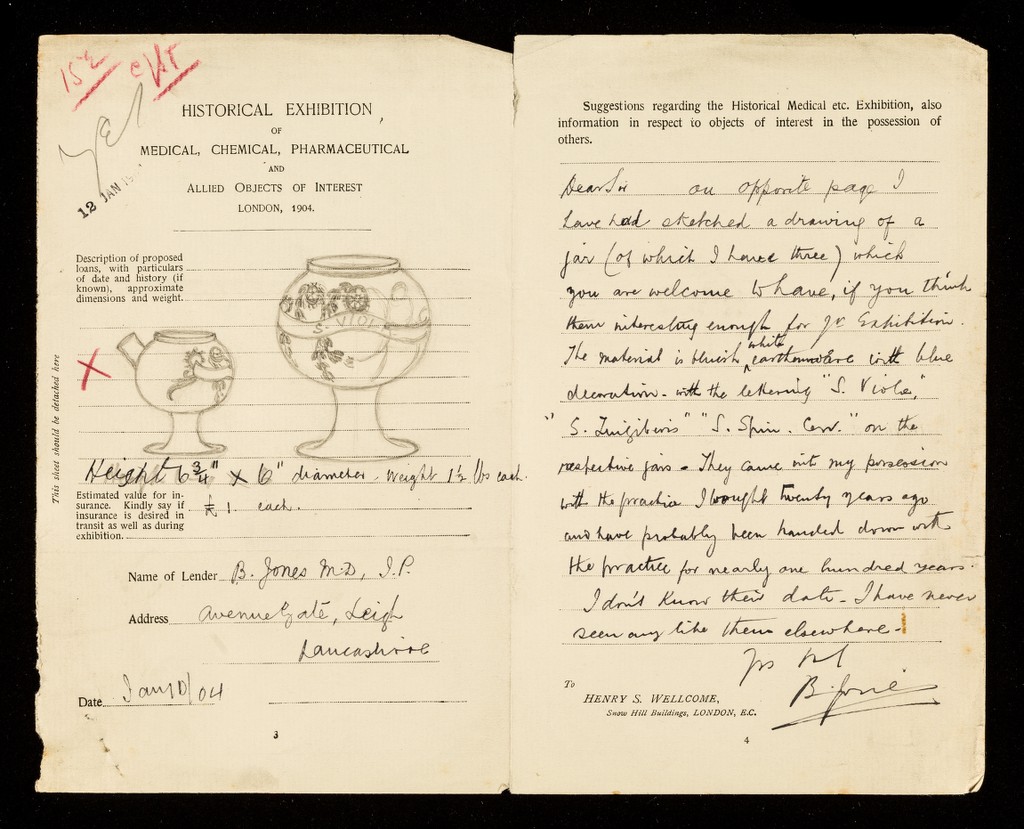 15
12 JAN
HISTORICAL EXHIBITION
OF
MEDICAL, CHEMICAL, PHARMACEUTICAL
AND
ALLIED OBJECTS OF INTEREST
LONDON, 1904.
Description of proposed
loans, with particulars
of date and history (if
known), approximate
dimensions and weight.
S. VIOL
X
This sheet should be detached here
Height 6 3/4" x 6" diameter. Weight 1½ lbs each.
Estimated value for in-
surance. Kindly say if
insurance is desired in
transit as well as during
exhibition.
£1. each.
Name of Lender B. Jones M.D, J.P.
Address Avenue Gate, Leigh
Lancashire
Date Jany 10/04
3
Suggestions regarding the Historical Medical etc. Exhibition, also
information in respect to objects of interest in the possession of
others.
Dear Sir on opposite page I
have had sketched a drawing of a
jar (of which I have three) which
you are welcome to have, if you think
them interesting enough for yr Exhibition.
The material is bluish white earthenware with blue
decoration - with the lettering "S. Viola,"
"S. Zingiberis" "S. Spin. Cerv." on the
respective jars - They came into my possession
with the practice I bought twenty years ago
and have probably been handed down with
the practice for nearly one hundred years.
I don't know their date - I have never
seen any like them elsewhere -
Yrs
B. Jones
To
HENRY S. WELLCOME,
Snow Hill Buildings, LONDON, E.C.
4